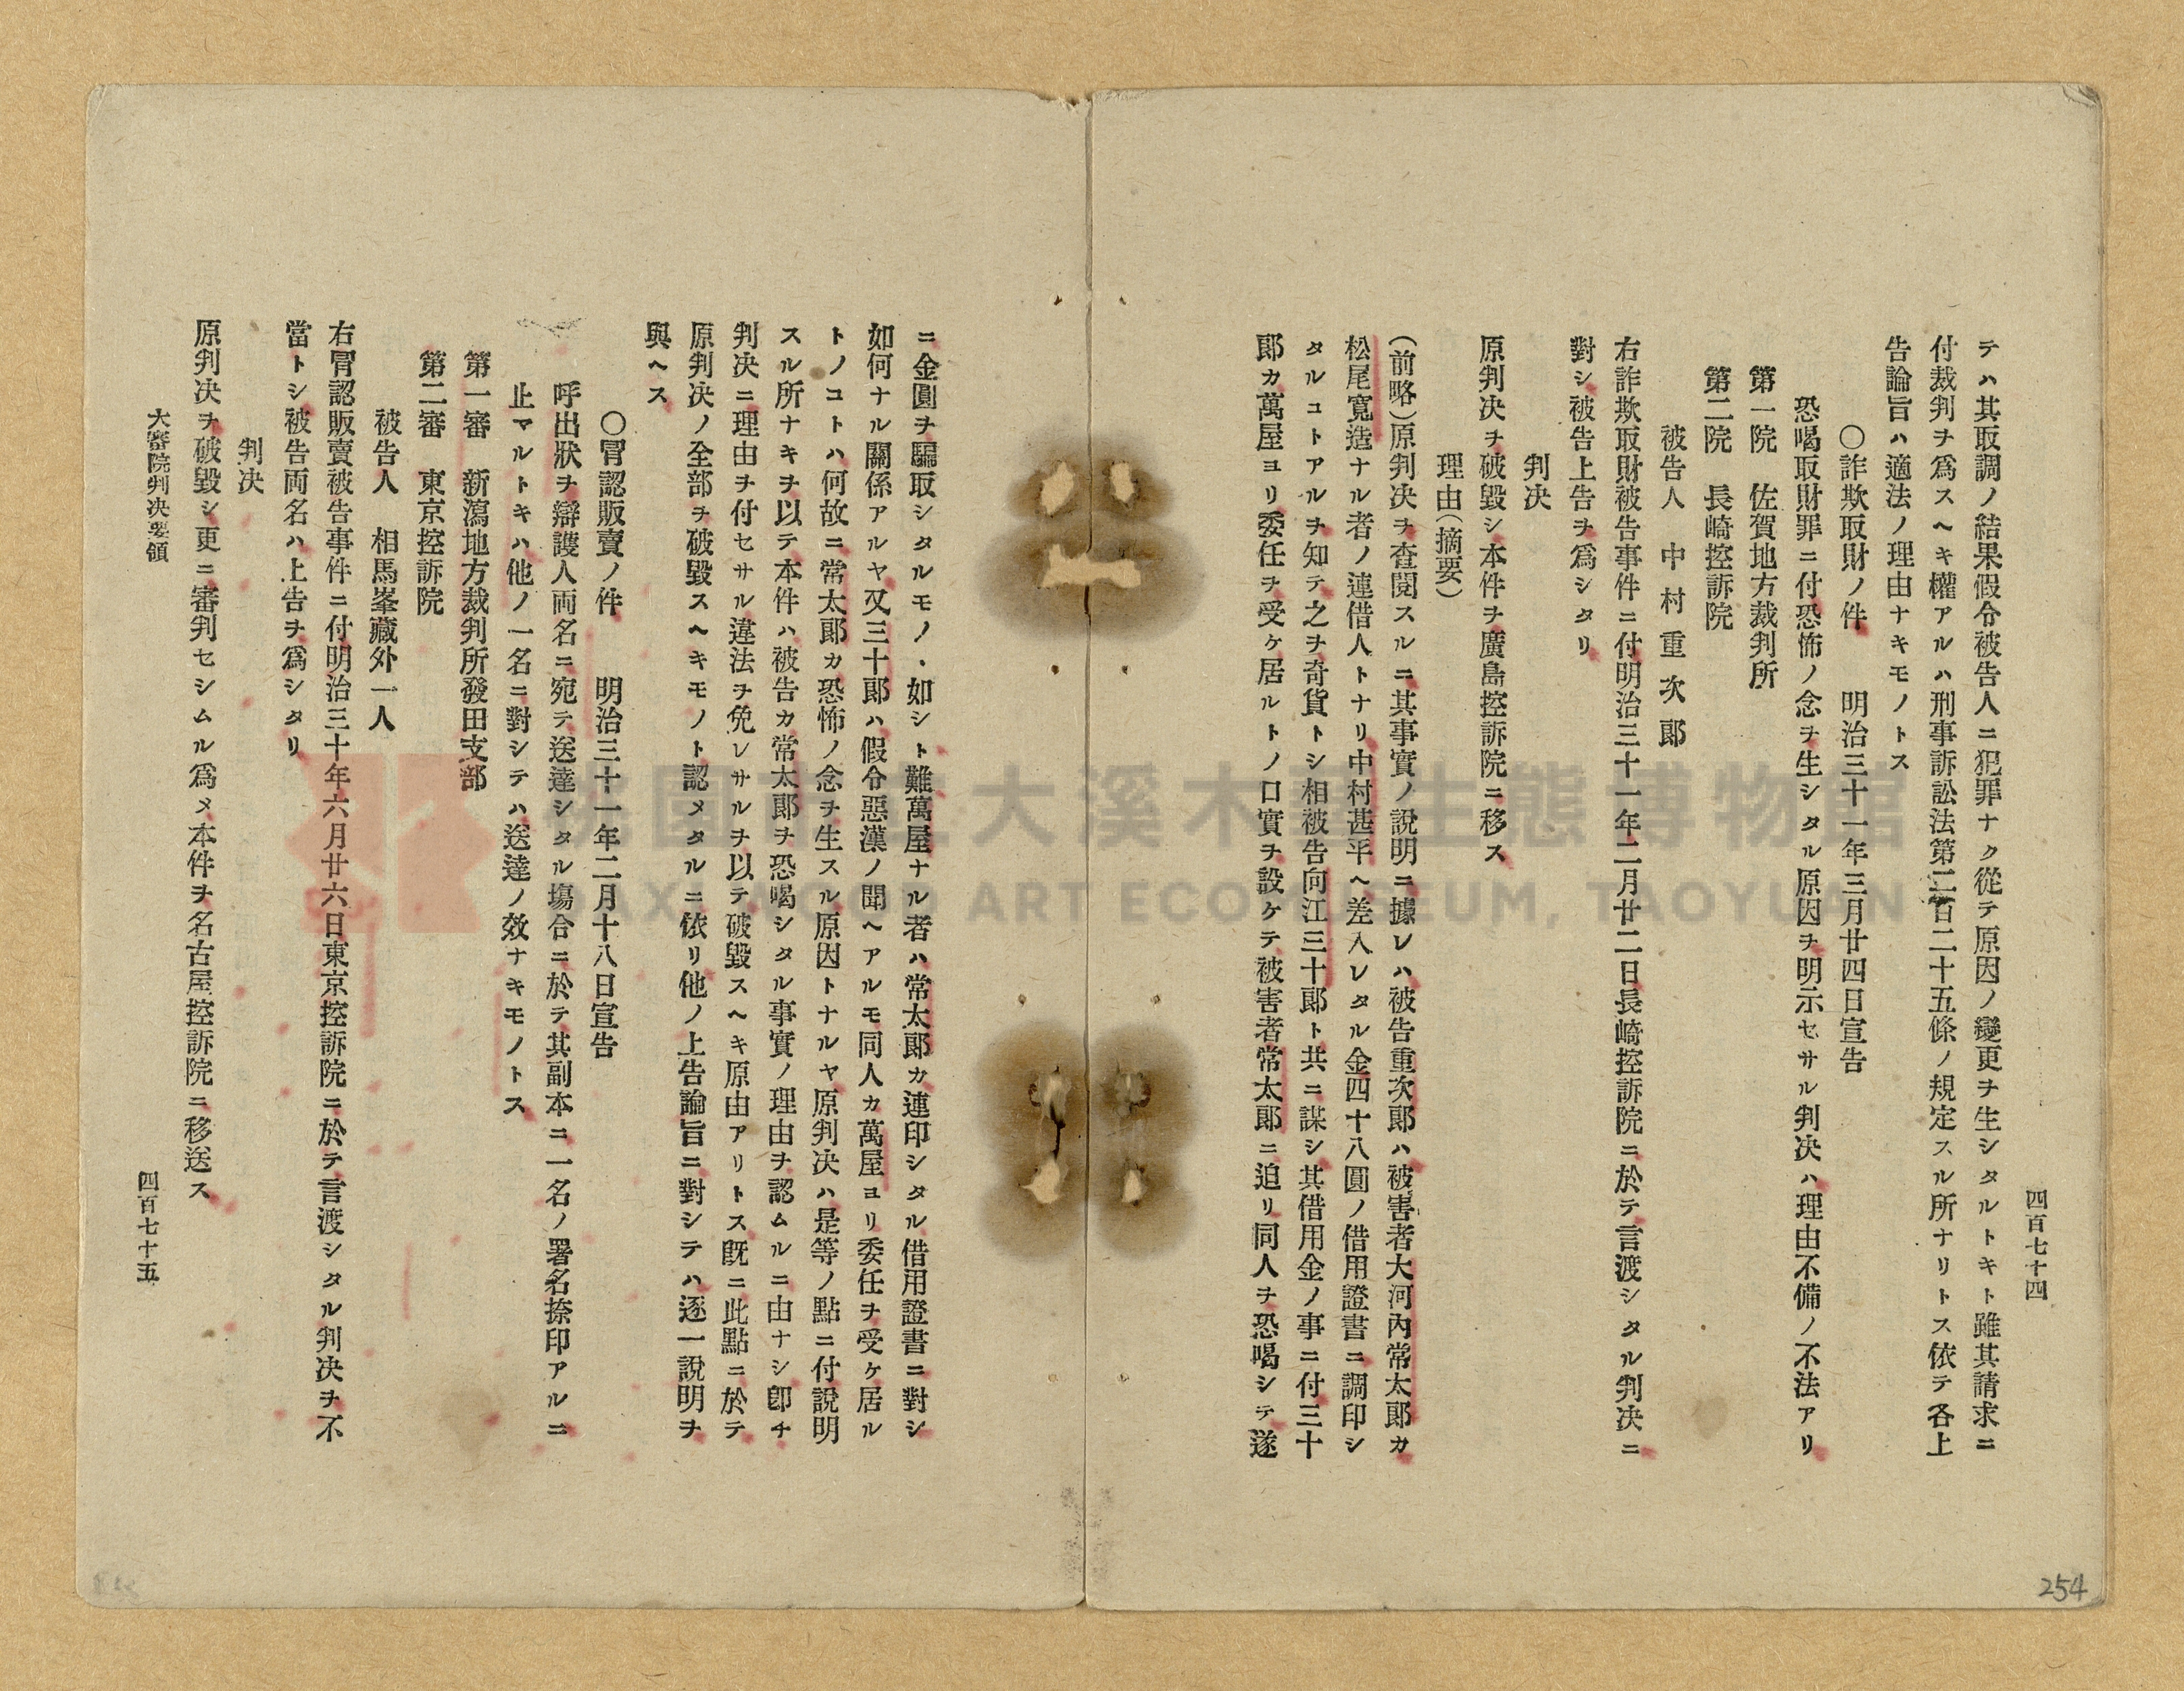 四百七十四
テハ其取調ノ結果假令被告人ニ犯罪ナク從テ原因ノ變更ヲ生シタルトキト雖其請求ニ
付裁判ヲ爲スヘキ權アルハ刑事訴訟法第二百二十五條ノ規定スル所ナリトス依テ各上
告論旨ハ適法ノ理由ナキモノトス
〇詐欺取財ノ件 明治三十一年三月廿四日宣告
恐喝取財罪ニ付恐怖ノ念ヲ生シタル原因ヲ明示セサル判决ハ理由不備ノ不法アリ
第一院 佐賀地方裁判所
第二院 長崎控訴院
被告人 中村重次郎
右詐欺取財被告事件ニ付明治三十一年二月廿二日長崎控訴院ニ於テ言渡シタル判决ニ
對シ被告上告ヲ爲シタリ
判决
原判决ヲ破毀シ本件ヲ廣島控訴院ニ移ス
理由(摘要)
(前略)原判决ヲ査閱スルニ其事實ノ說明ニ據レハ被告重次郎ハ被害者大河內常太郎カ
松尾寬造ナル者ノ連借人トナリ中村甚平ヘ差入レタル金四十八圓ノ借用證書ニ調印シ
タルコトアルヲ知テ之ヲ奇貨トシ相被告向江三十郎ト共ニ謀シ其借用金ノ事ニ付三十
郎カ萬屋ヨリ委任ヲ受ケ居ルトノ口實ヲ設ケテ被害者常太郎ニ迫リ同人ヲ恐喝シテ遂
ニ金圓ヲ騙取シタルモノヽ如シト難萬屋ナル者ハ常太郎カ連印シタル借用證書ニ對シ
如何ナル關係アルヤ又三十郎ハ假令惡漢ノ聞ヘアルモ同人カ萬屋ヨリ委任ヲ受ケ居ル
トノコトハ何故ニ常太郎カ恐怖ノ念ヲ生スル原因トナルヤ原判决ハ是等ノ點ニ付說明
スル所ナキヲ以テ本件ハ被告カ常太郎ヲ恐喝シタル事實ノ理由ヲ認ムルニ由ナシ卽チ
判决ニ理由ヲ付セサル違法ヲ免レサルヲ以テ破毀スヘキ原由アリトス旣ニ此點ニ於テ
原判决ノ全部ヲ破毀スヘキモノト認メタルニ依リ他ノ上告論旨ニ對シテハ逐一說明ヲ
與ヘス
〇冒認販賣ノ件 明治三十一年二月十八日宣告
呼出狀ヲ辯護人両名ニ宛テ送達シタル塲合ニ於テ其副本ニ一名ノ署名捺印アルニ
止マルトキハ他ノ一名ニ對シテハ送達ノ效ナキモノトス
第一審 新潟地方裁判所發田支部
第二審 東京控訴院
被告人 相馬峯藏外一人
右冒認販賣被告事件ニ付明治三十年六月廿六日東京控訴院ニ於テ言渡シタル判决ヲ不
當トシ被告両名ハ上告ヲ爲シタリ
判决
原判决ヲ破毀シ更ニ審判セシムル爲メ本件ヲ名古屋控訴院ニ移送ス
大審院判决要領
四百七十五
254
大溪木藝生態博物館
DAXI WOOD ART ECOMUSEUM, TAOYUAN